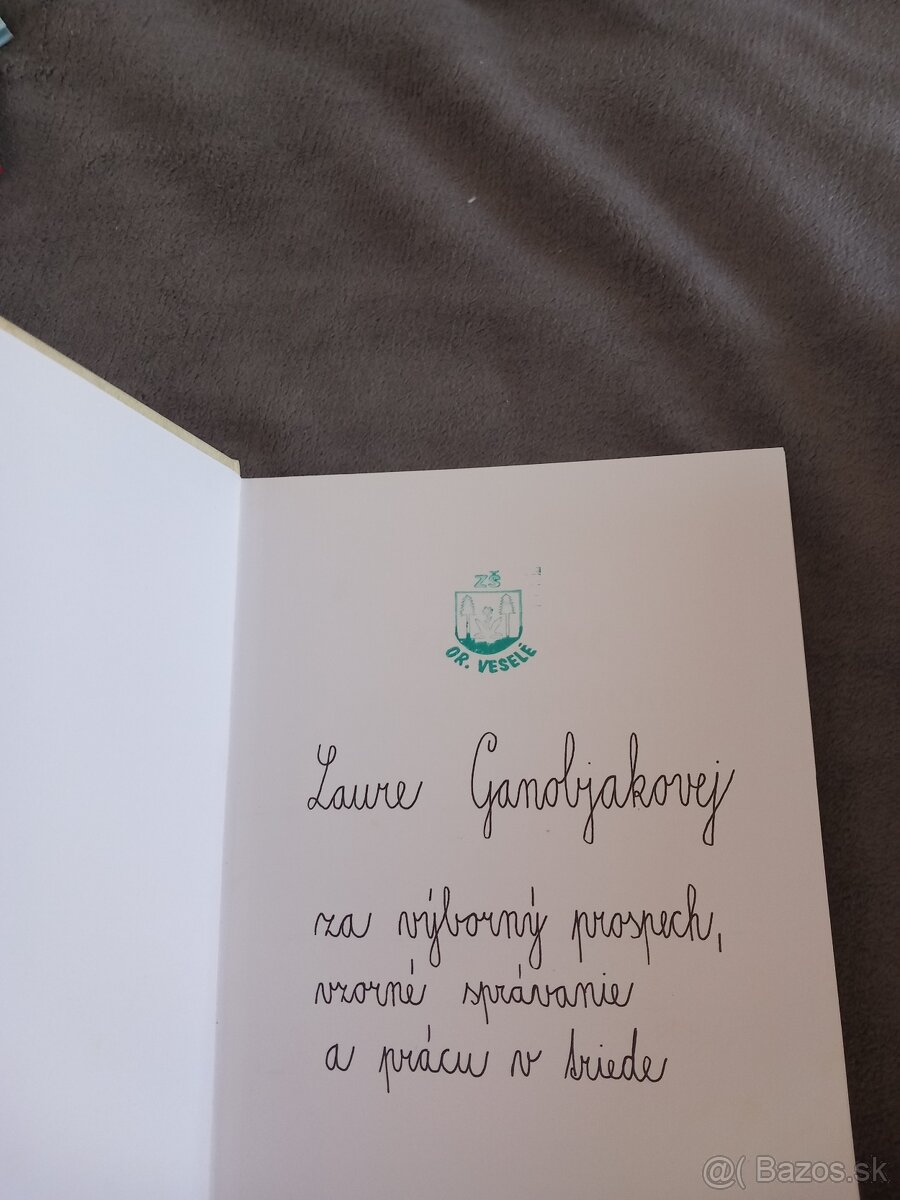 ZŠ
OR. VESELÉ
Laure Ganobjakovej
za výborný prospech,
vzorné správanie
a prácu v triede
@( Bazos.sk